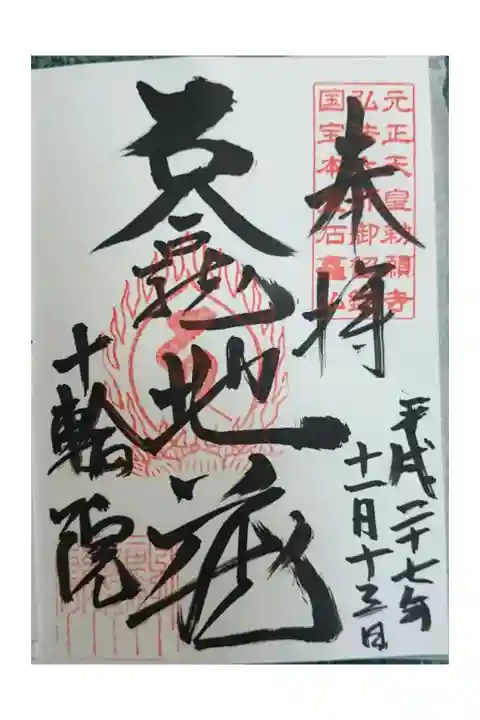 元正天皇勅願寺
弘法大師御
国宝本堂石龕仏
奉拝
平成二十七年
十一月十三日
石龕地蔵
十輪院